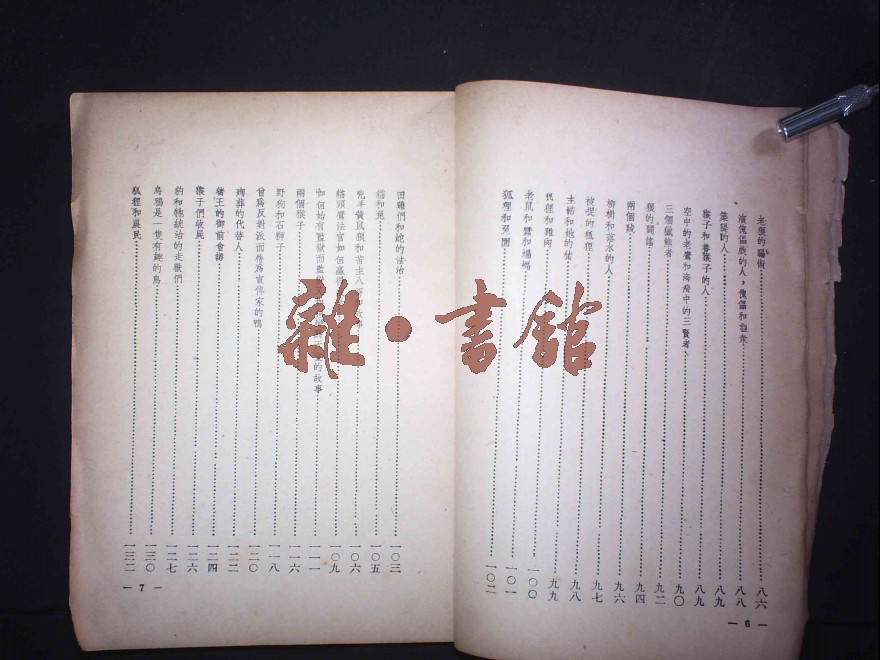 老猴的騙術……八六
演傀儡戲的人，傀儡和觀衆……八八
築隄的人……八九
猴子和養猴子的人……八九
空中的老鷹和海飛中的三賢者……九〇
三個獵熊者……九二
猴的閙謠……九四
兩個賊……九六
柳樹和落水的人……九七
被捉的狐狸……九八
主婦和她的猪……九九
狐狸和雞肉……九九
老鼠和蠶和蝙蝠……一〇〇
狐狸和果園……一〇一
一〇二
— 6 —
田雞們和蛇的法治……一〇三
貓和兎……一〇五
一〇六
貓頭鷹法官如何
一〇九
如何始有監獄而監獄
的故事……一一一
兩個猴子……一一六
野狗和石獅子……一一八
曾爲反對派而後爲宣傳家的鴨……一二〇
殉葬的代替人……一二二
猪王的御前會議……一二四
猴子們收屍……一二六
豹和牠統治的走獸們……一二七
烏鴉是一隻有趣的鳥……一三〇
狐狸和農民……一三二
— 7 —
雜·書館